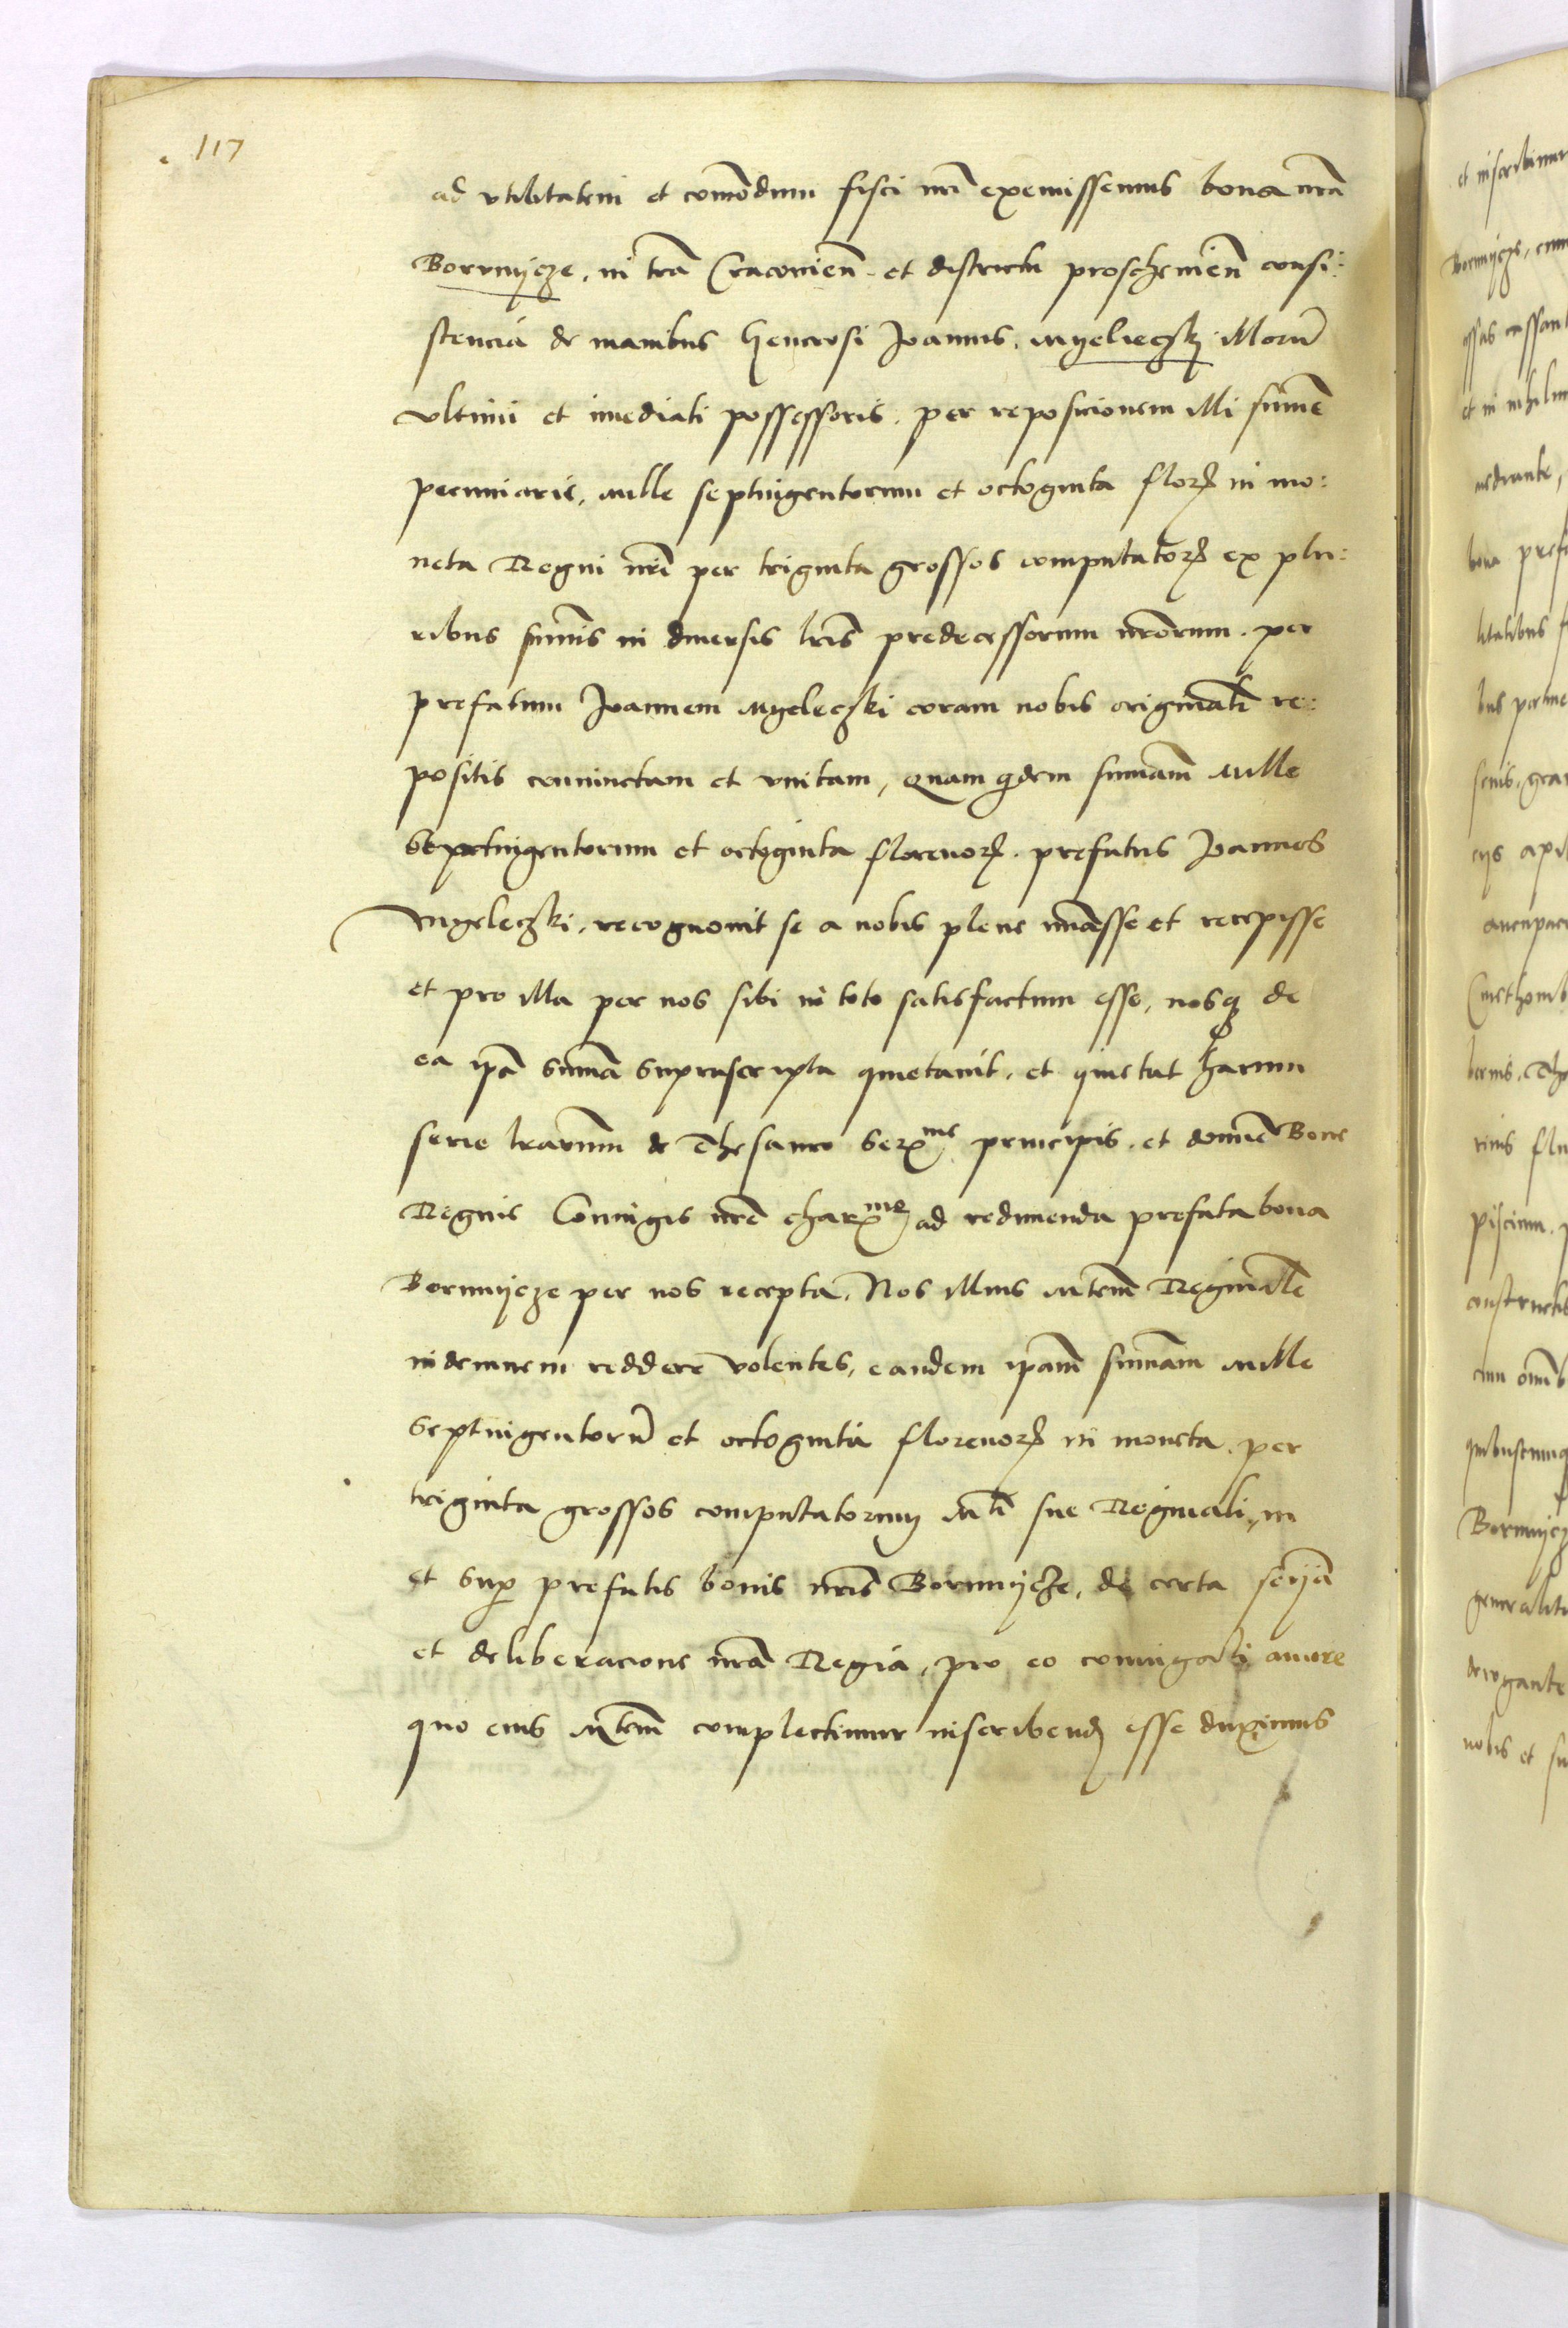 117
ad vtilitatem et com̃odum fisci nr̃i exemissemus bona nr̃a
Borvnijcze, in tr̃a Cracouien̄ et districtu proschouien̄ consi:
stencia de manibus Generosi Joannis Myeleczki Illorũ
vltimi et im̃ediati possessoris per reposicionem illi sum̃e
pecuniarie, mille septingentorum et octoginta florꝝ in mo:
neta Regni nr̃i per triginta grossos computatorꝝ ex plu:
ribus sum̃is in diuersis lr̃is predecessorum nr̃orum per
prefatum Joannem Myeleczki coram nobis originalr̃ re:
positis coniunctam et vnitam, quam q̃dem sum̃am mille
Septuingentorum et octoginta florenorꝝ prefatus Joannes
Myeleczki, recognouit se a nobis plene leuasse et recepisse
et pro illa per nos sibi in toto satisfactum esse, nosqꝫ de
ea ip̃a sum̃a suprascripta quietauit, et quietat harum
serie lr̃arum de Thesauro Serx^me principis et domine Bone
Regine Coniugis nr̃e charx^me ad redimenda prefata bona
Borunijcze per nos recepta, Nos illius M̃tem Reginalẽ
indemnem reddere volentes, eandem ip̃am sum̃am mille
Septuingentorũ et octoginta florenorꝝ in moneta per
triginta grossos computatorum M̃ti sue Reginali, in
et suꝑ prefatis bonis nr̃is Borunijcze, de certa sc̃ija
et deliberacione nr̃a Regia, pro eo coniugali amore
quo eius M̃tem complectimur inscribenđ esse duximus
et inscribimus
Borunijcze, cum
et in nihilum
mediante,
bona prefa
litatibus
bus pertine
senis, gra
Cmethonib
bernis, The
riuis flu
piscium
constructis
cum om̃ib
quibuscunq
Borunijcz
generalit
derogante
nobis et su